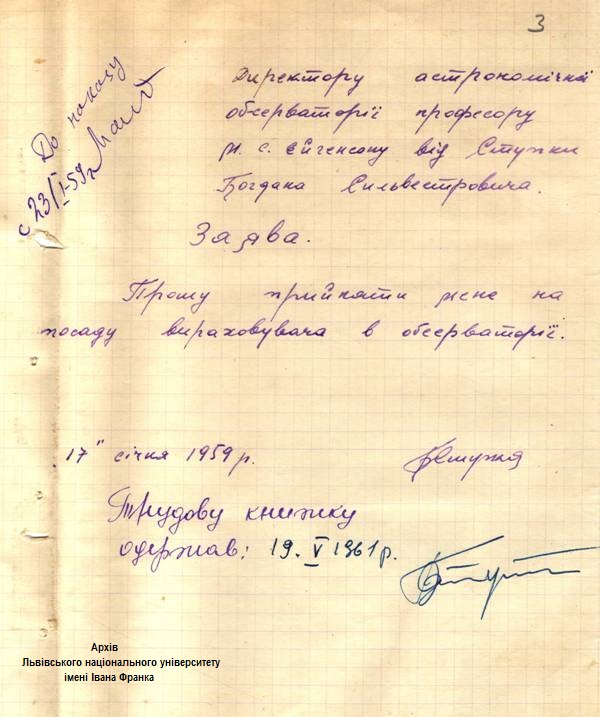 3
До наказу
с 23/I-59 р
Директору астрономічної
обсерваторії професору
М. С. Ейгенсону від Стужки
Богдана Сильвестровича.
Заява.
Прошу прийняти мене на
посаду вираховувача в обсерваторії.
"17" січня 1959 р. БСтужка
Трудову книжку
одержав: 19. V 1961 р.
Архів
Львівського національного університету
імені Івана Франка